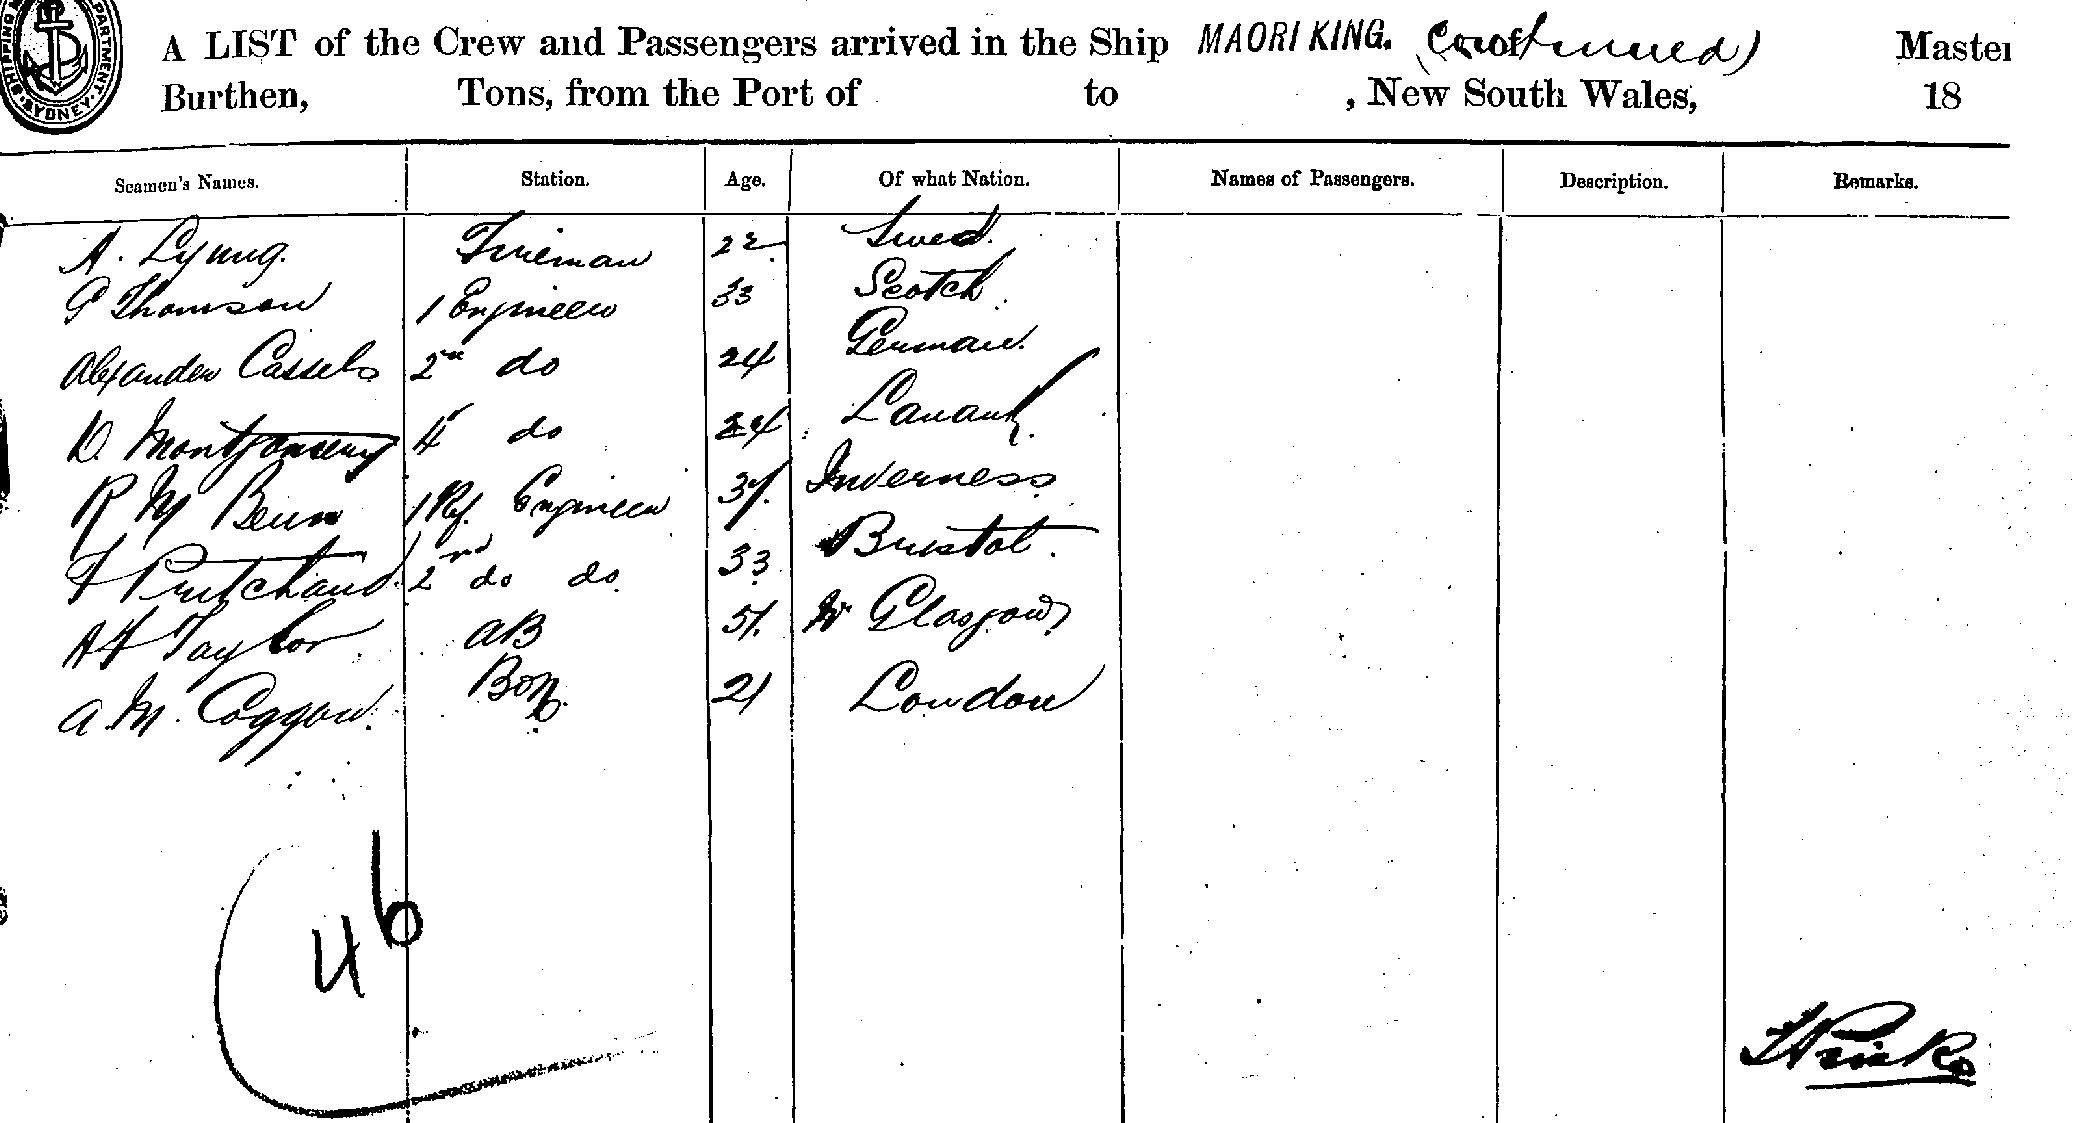 SHIPPING PARTMENT. SYDNEY.
A LIST of the Crew and Passengers arrived in the Ship MAORI KING. (continued) Master
Burthen, Tons, from the Port of to , New South Wales, 18
Seamen's Names. Station. Age. Of what Nation. Names of Passengers. Description. Remarks.
A. Lyung. Fireman 22 Swed.
G Thomson 1 Engineer 33 Scotch
Alexander Cassels 2nd do 24 German.
D. Montgomery 4 do 24 Lanark.
R M Benn 1 Ref. Engineer 37. Inverness
F Pritchard. 2nd do do. 33 Bristol.
A H Taylor AB 51. Glasgow
A. M. Coggan. Boy. 21 London
46